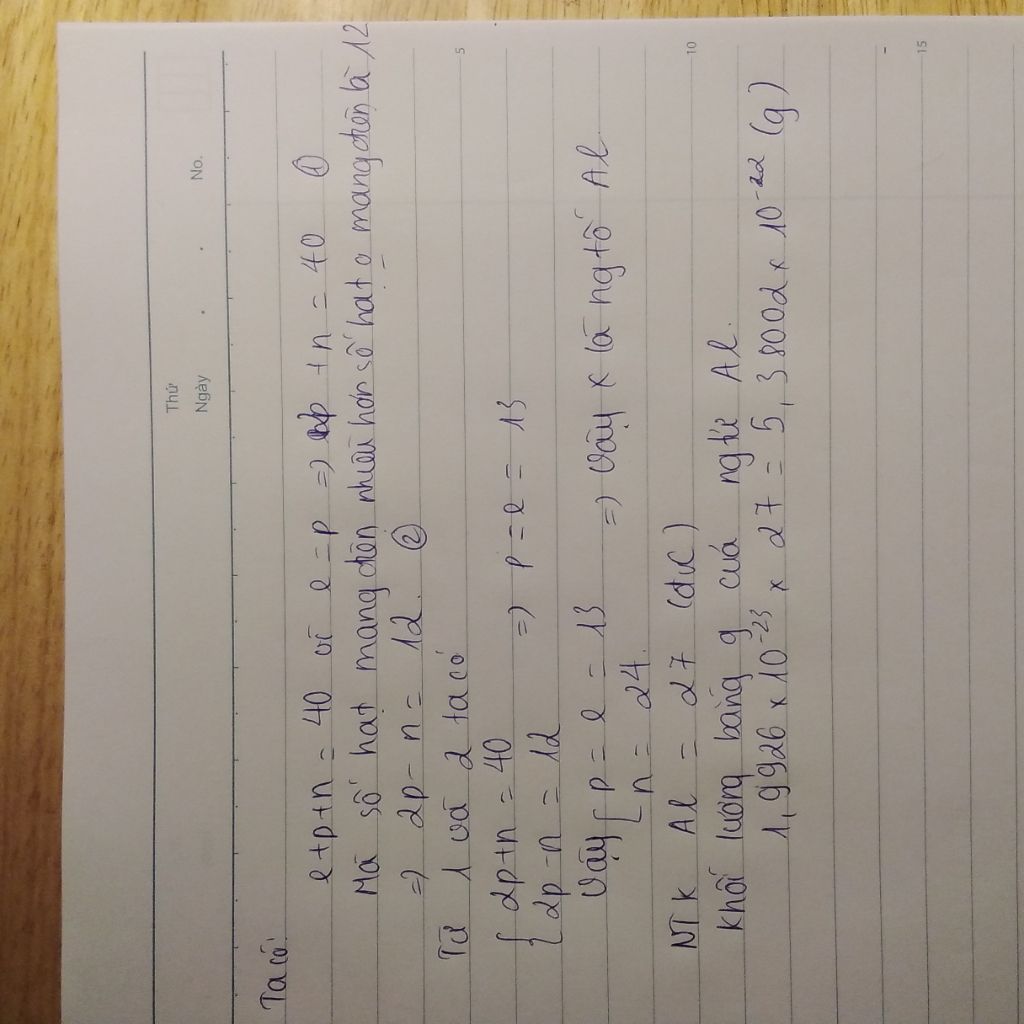 Thứ
Ngày . . No.
Ta có:
e+p+n = 40 vì e = p => 2p + n = 40 ①
Mà số hạt mang điện nhiều hơn số hạt o mang điện là 12
=> 2p - n = 12. ②
Từ 1 và 2 ta có
{ 2p+n = 40
{ 2p-n = 12 => p = e = 13
Vậy [ p = e = 13 => Vậy x là ngtố Al
n = 24.
NTK Al = 27 (đvC)
Khối lượng bằng g của ngtử Al.
1,9926 x 10⁻²³ x 27 = 5,38002 x 10⁻²² (g)
5
10
15